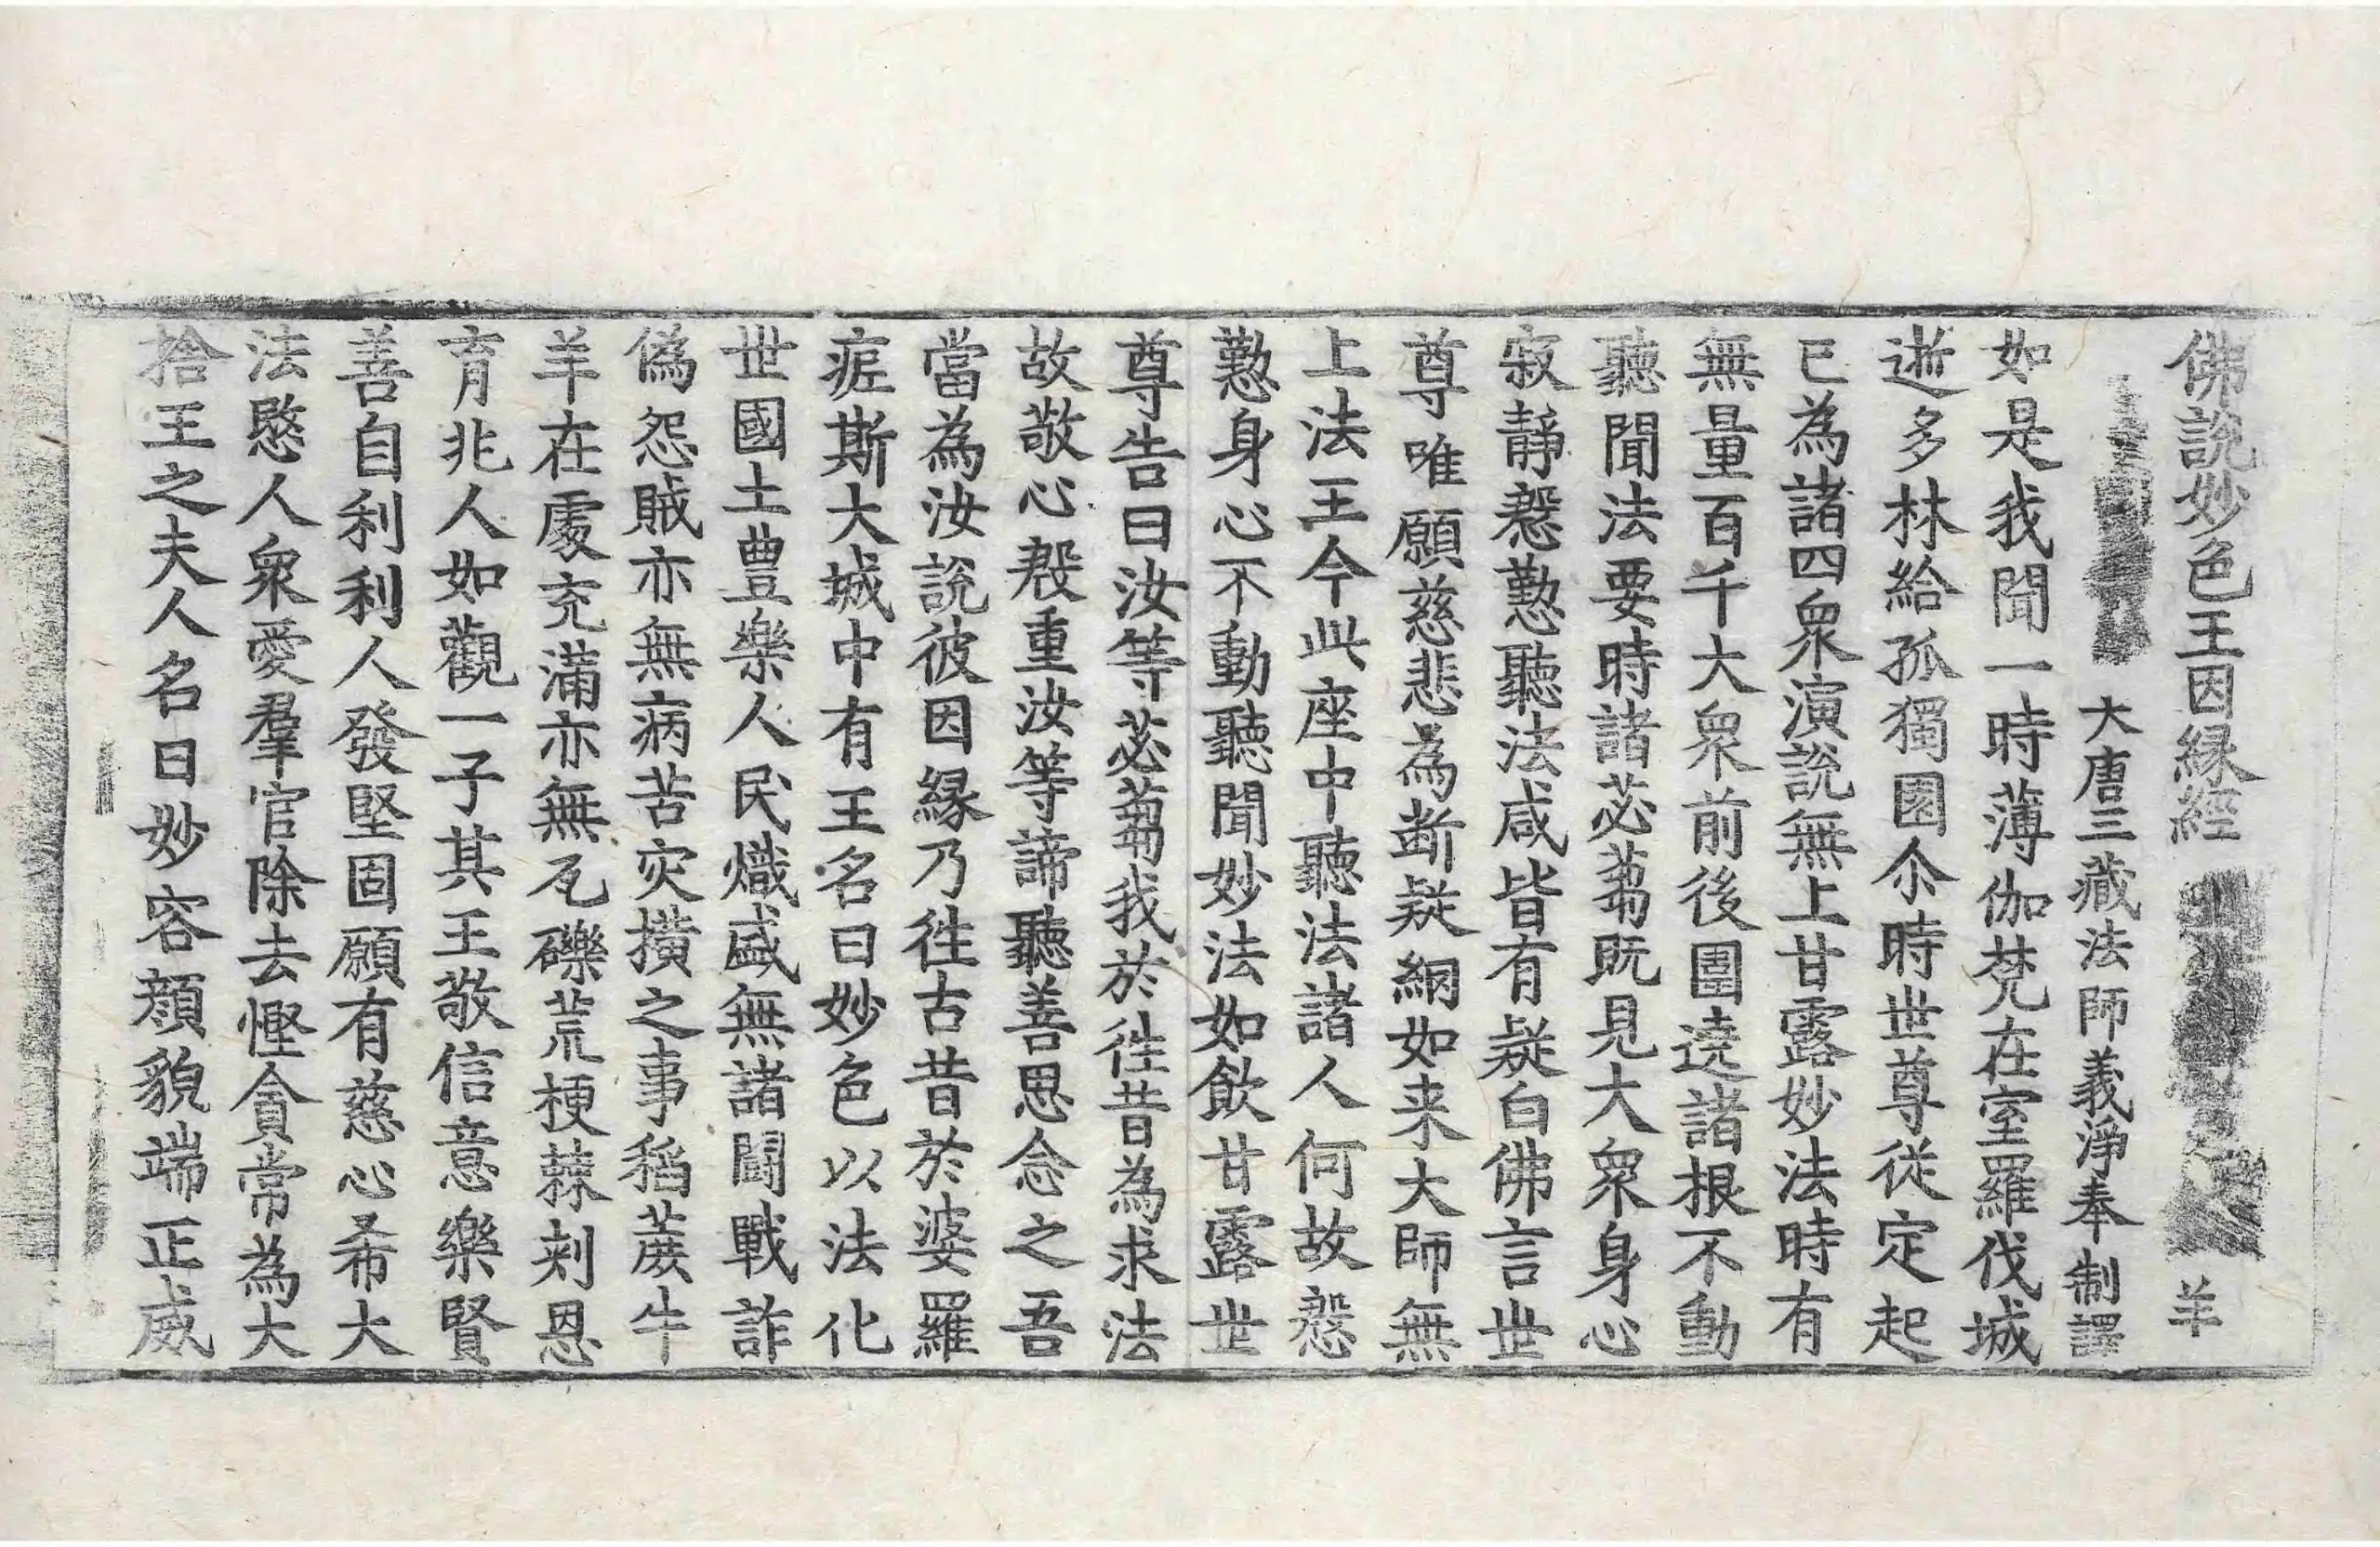 佛說妙色王因緣經 羊
大唐三藏法師義淨奉 制譯
如是我聞一時薄伽梵在室羅伐城
逝多林給孤獨園尒時世尊從定起
已為諸四衆演說無上甘露妙法時有
無量百千大衆前後圍遶諸根不動
聽聞法要時諸苾蒭既見大衆身心
寂靜慇懃聽法咸皆有疑白佛言世
尊唯願慈悲為斷疑網如来大師無
上法王今此座中聽法諸人何故慇
懃身心不動聽聞妙法如飲甘露世
尊告曰汝等苾蒭我於往昔為求法
故敬心慇重汝等諦聽善思念之吾
當為汝說彼因緣乃往古昔於婆羅
痆斯大城中有王名曰妙色以法化
世國土豊樂人民熾盛無諸鬪戰詐
偽怨賊亦無病苦灾撗之事稻蔗牛
羊在處充滿亦無瓦礫荒梗棘刺恩
育兆人如觀一子其王敬信意樂賢
善自利利人發堅固願有慈心希大
法愍人衆愛羣官除去慳貪常為大
捨王之夫人名曰妙容顔貌端正威